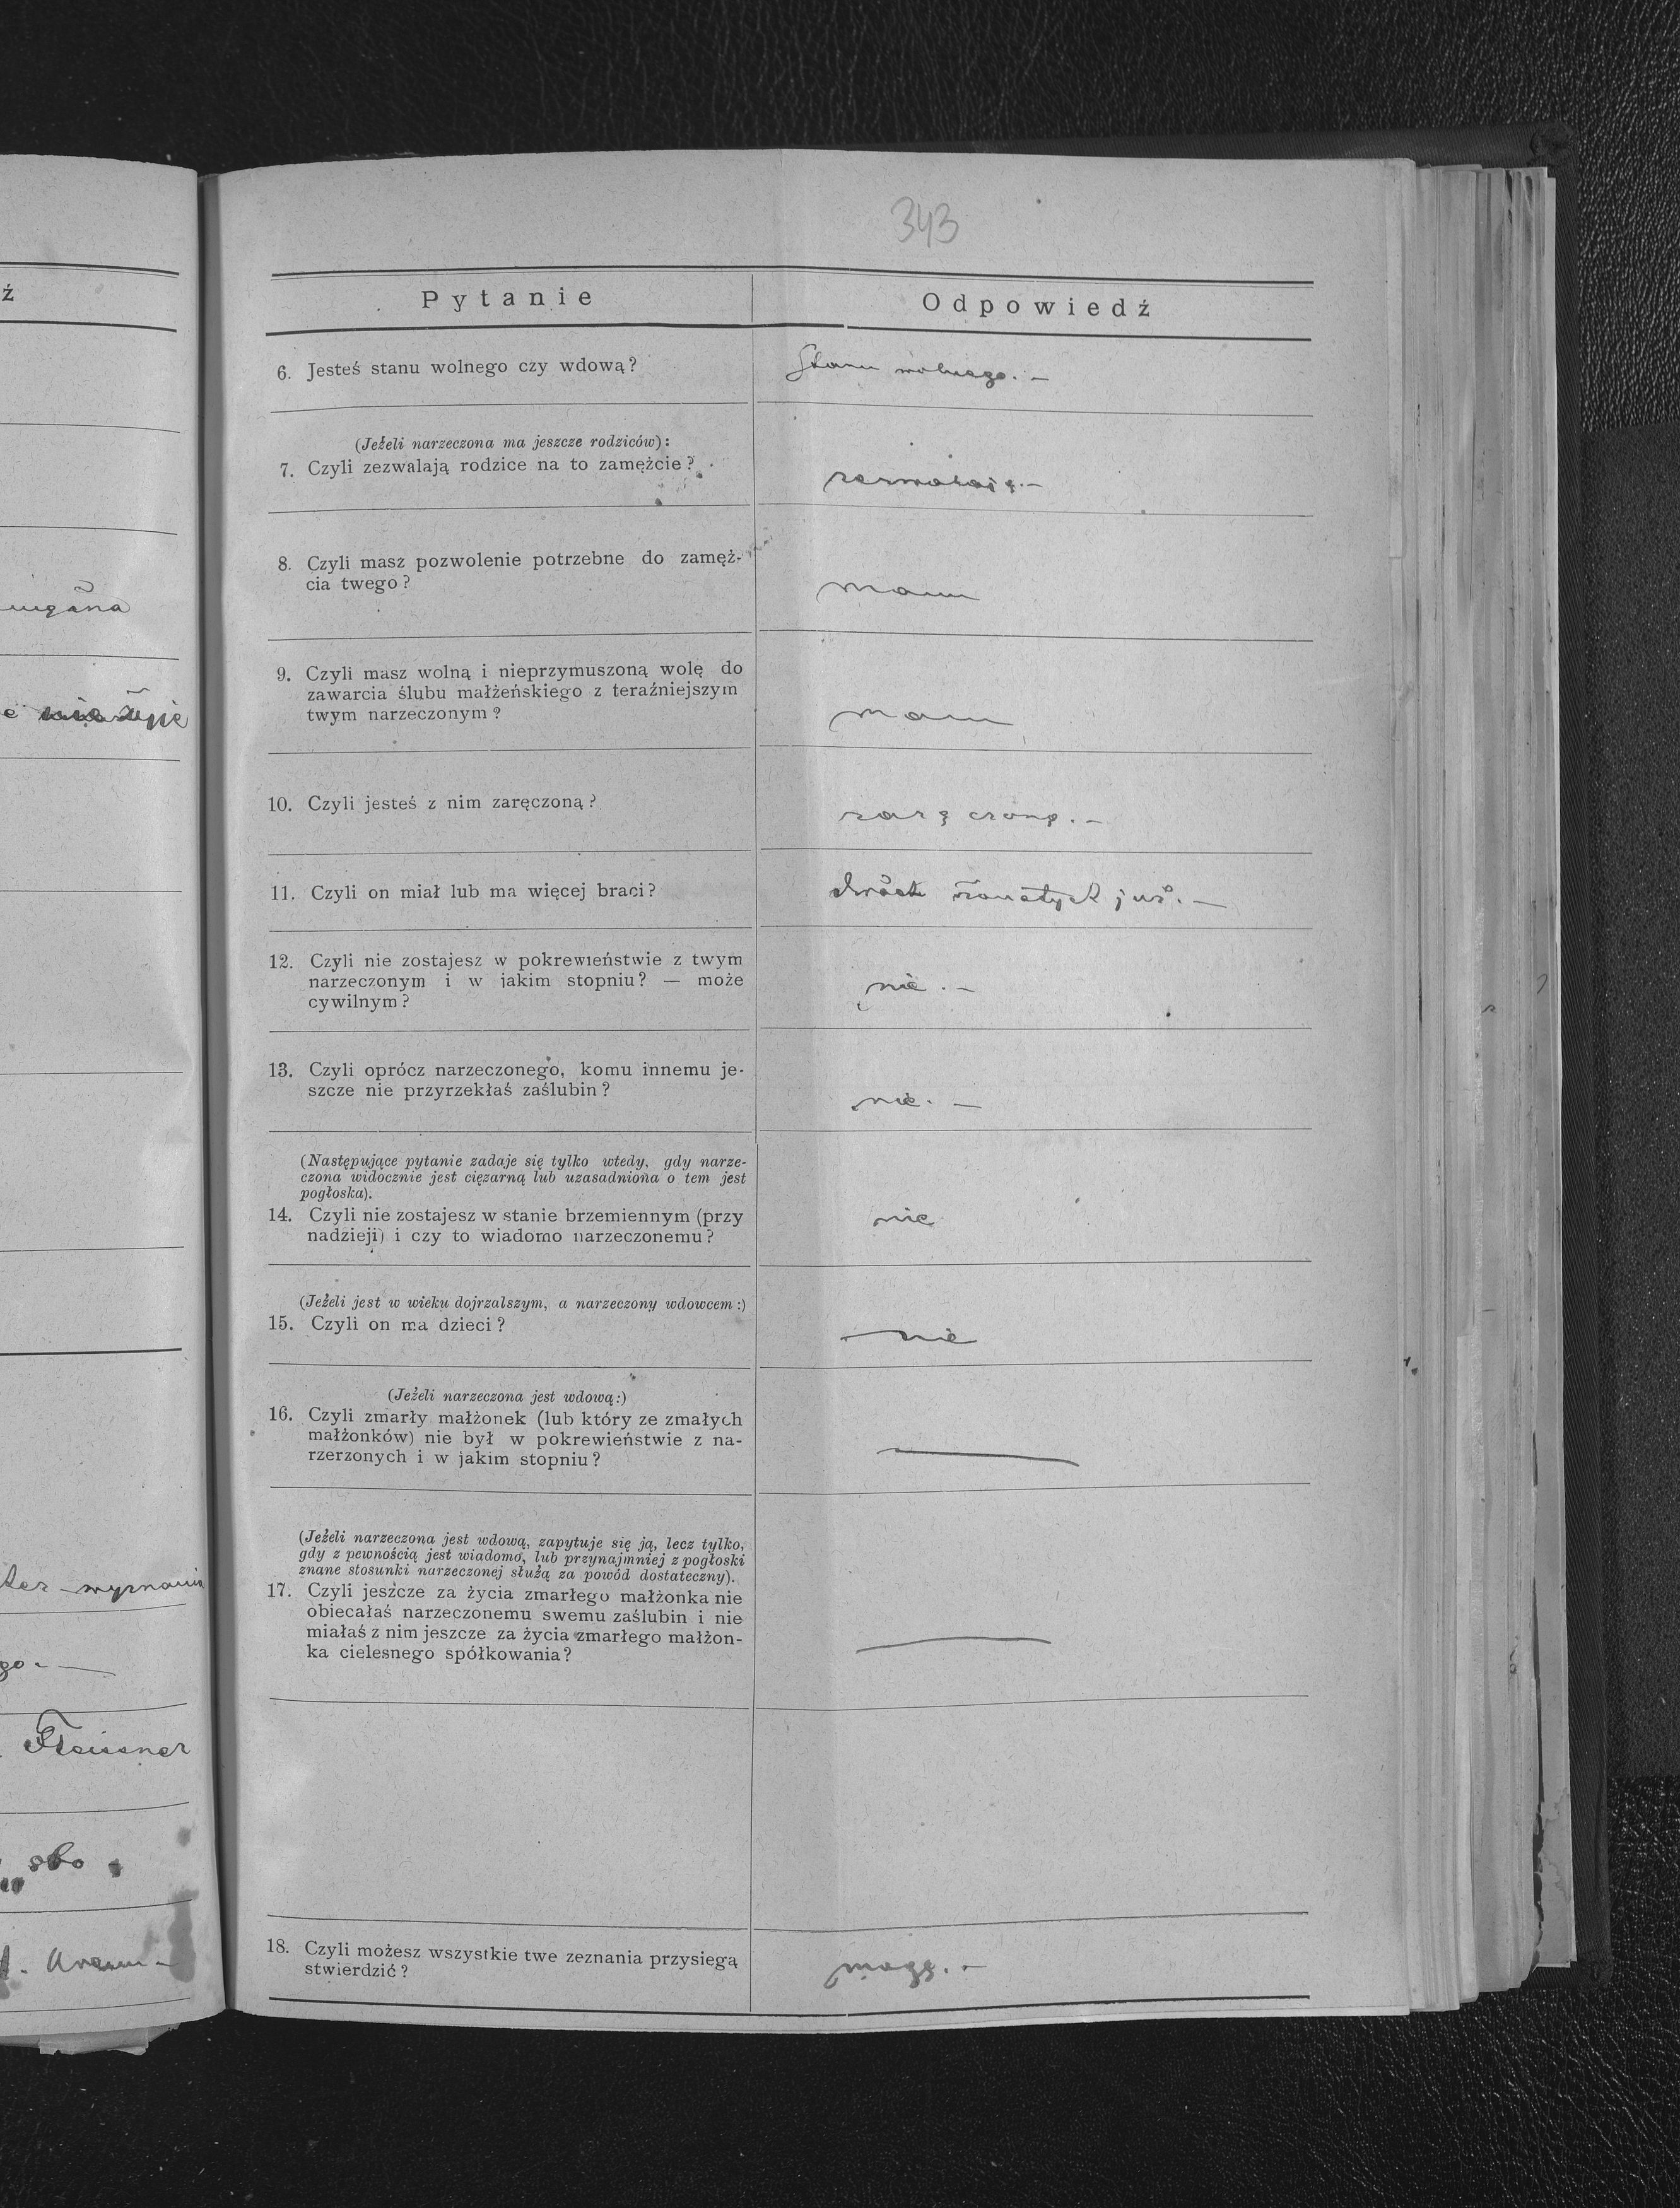 343
ź
Pytanie
Odpowiedź
6. Jesteś stanu wolnego czy wdową?
Stanu wolnego. —
(Jeżeli narzeczona ma jeszcze rodziców):
7. Czyli zezwalają rodzice na to zamężcie?
zezwalają. —
8. Czyli masz pozwolenie potrzebne do zamęż-
cia twego?
mam
9. Czyli masz wolną i nieprzymuszoną wolę do
zawarcia ślubu małżeńskiego z teraźniejszym
twym narzeczonym?
mam
10. Czyli jesteś z nim zaręczoną?
zaręczoną. —
11. Czyli on miał lub ma więcej braci?
dwóch żonatych już. —
12. Czyli nie zostajesz w pokrewieństwie z twym
narzeczonym i w jakim stopniu? — może
cywilnym?
nie. —
13. Czyli oprócz narzeczonego, komu innemu je-
szcze nie przyrzekłaś zaślubin?
nie. —
(Następujące pytanie zadaje się tylko wtedy, gdy narze-
czona widocznie jest ciężarną lub uzasadniona o tem jest
pogłoska).
14. Czyli nie zostajesz w stanie brzemiennym (przy
nadzieji) i czy to wiadomo narzeczonemu?
nie
(Jeżeli jest w wieku dojrzalszym, a narzeczony wdowcem:)
15. Czyli on ma dzieci?
nie
(Jeżeli narzeczona jest wdową:)
16. Czyli zmarły małżonek (lub który ze zmałych
małżonków) nie był w pokrewieństwie z na-
rzerzonych i w jakim stopniu?
(Jeżeli narzeczona jest wdową, zapytuje się ją, lecz tylko,
gdy z pewnością jest wiadomo, lub przynajmniej z pogłoski
znane stosunki narzeczonej służą za powód dostateczny).
17. Czyli jeszcze za życia zmarłego małżonka nie
obiecałaś narzeczonemu swemu zaślubin i nie
miałaś z nim jeszcze za życia zmarłego małżon-
ka cielesnego spółkowania?
18. Czyli możesz wszystkie twe zeznania przysięgą
stwierdzić?
mogę. —
wyznania
go. —